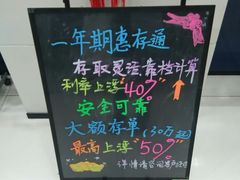 一年期惠存通
存取灵活靠档计算
利率上浮"40%"
安全可靠
大额存单(30万起)
最高上浮"50%"
详情请咨询